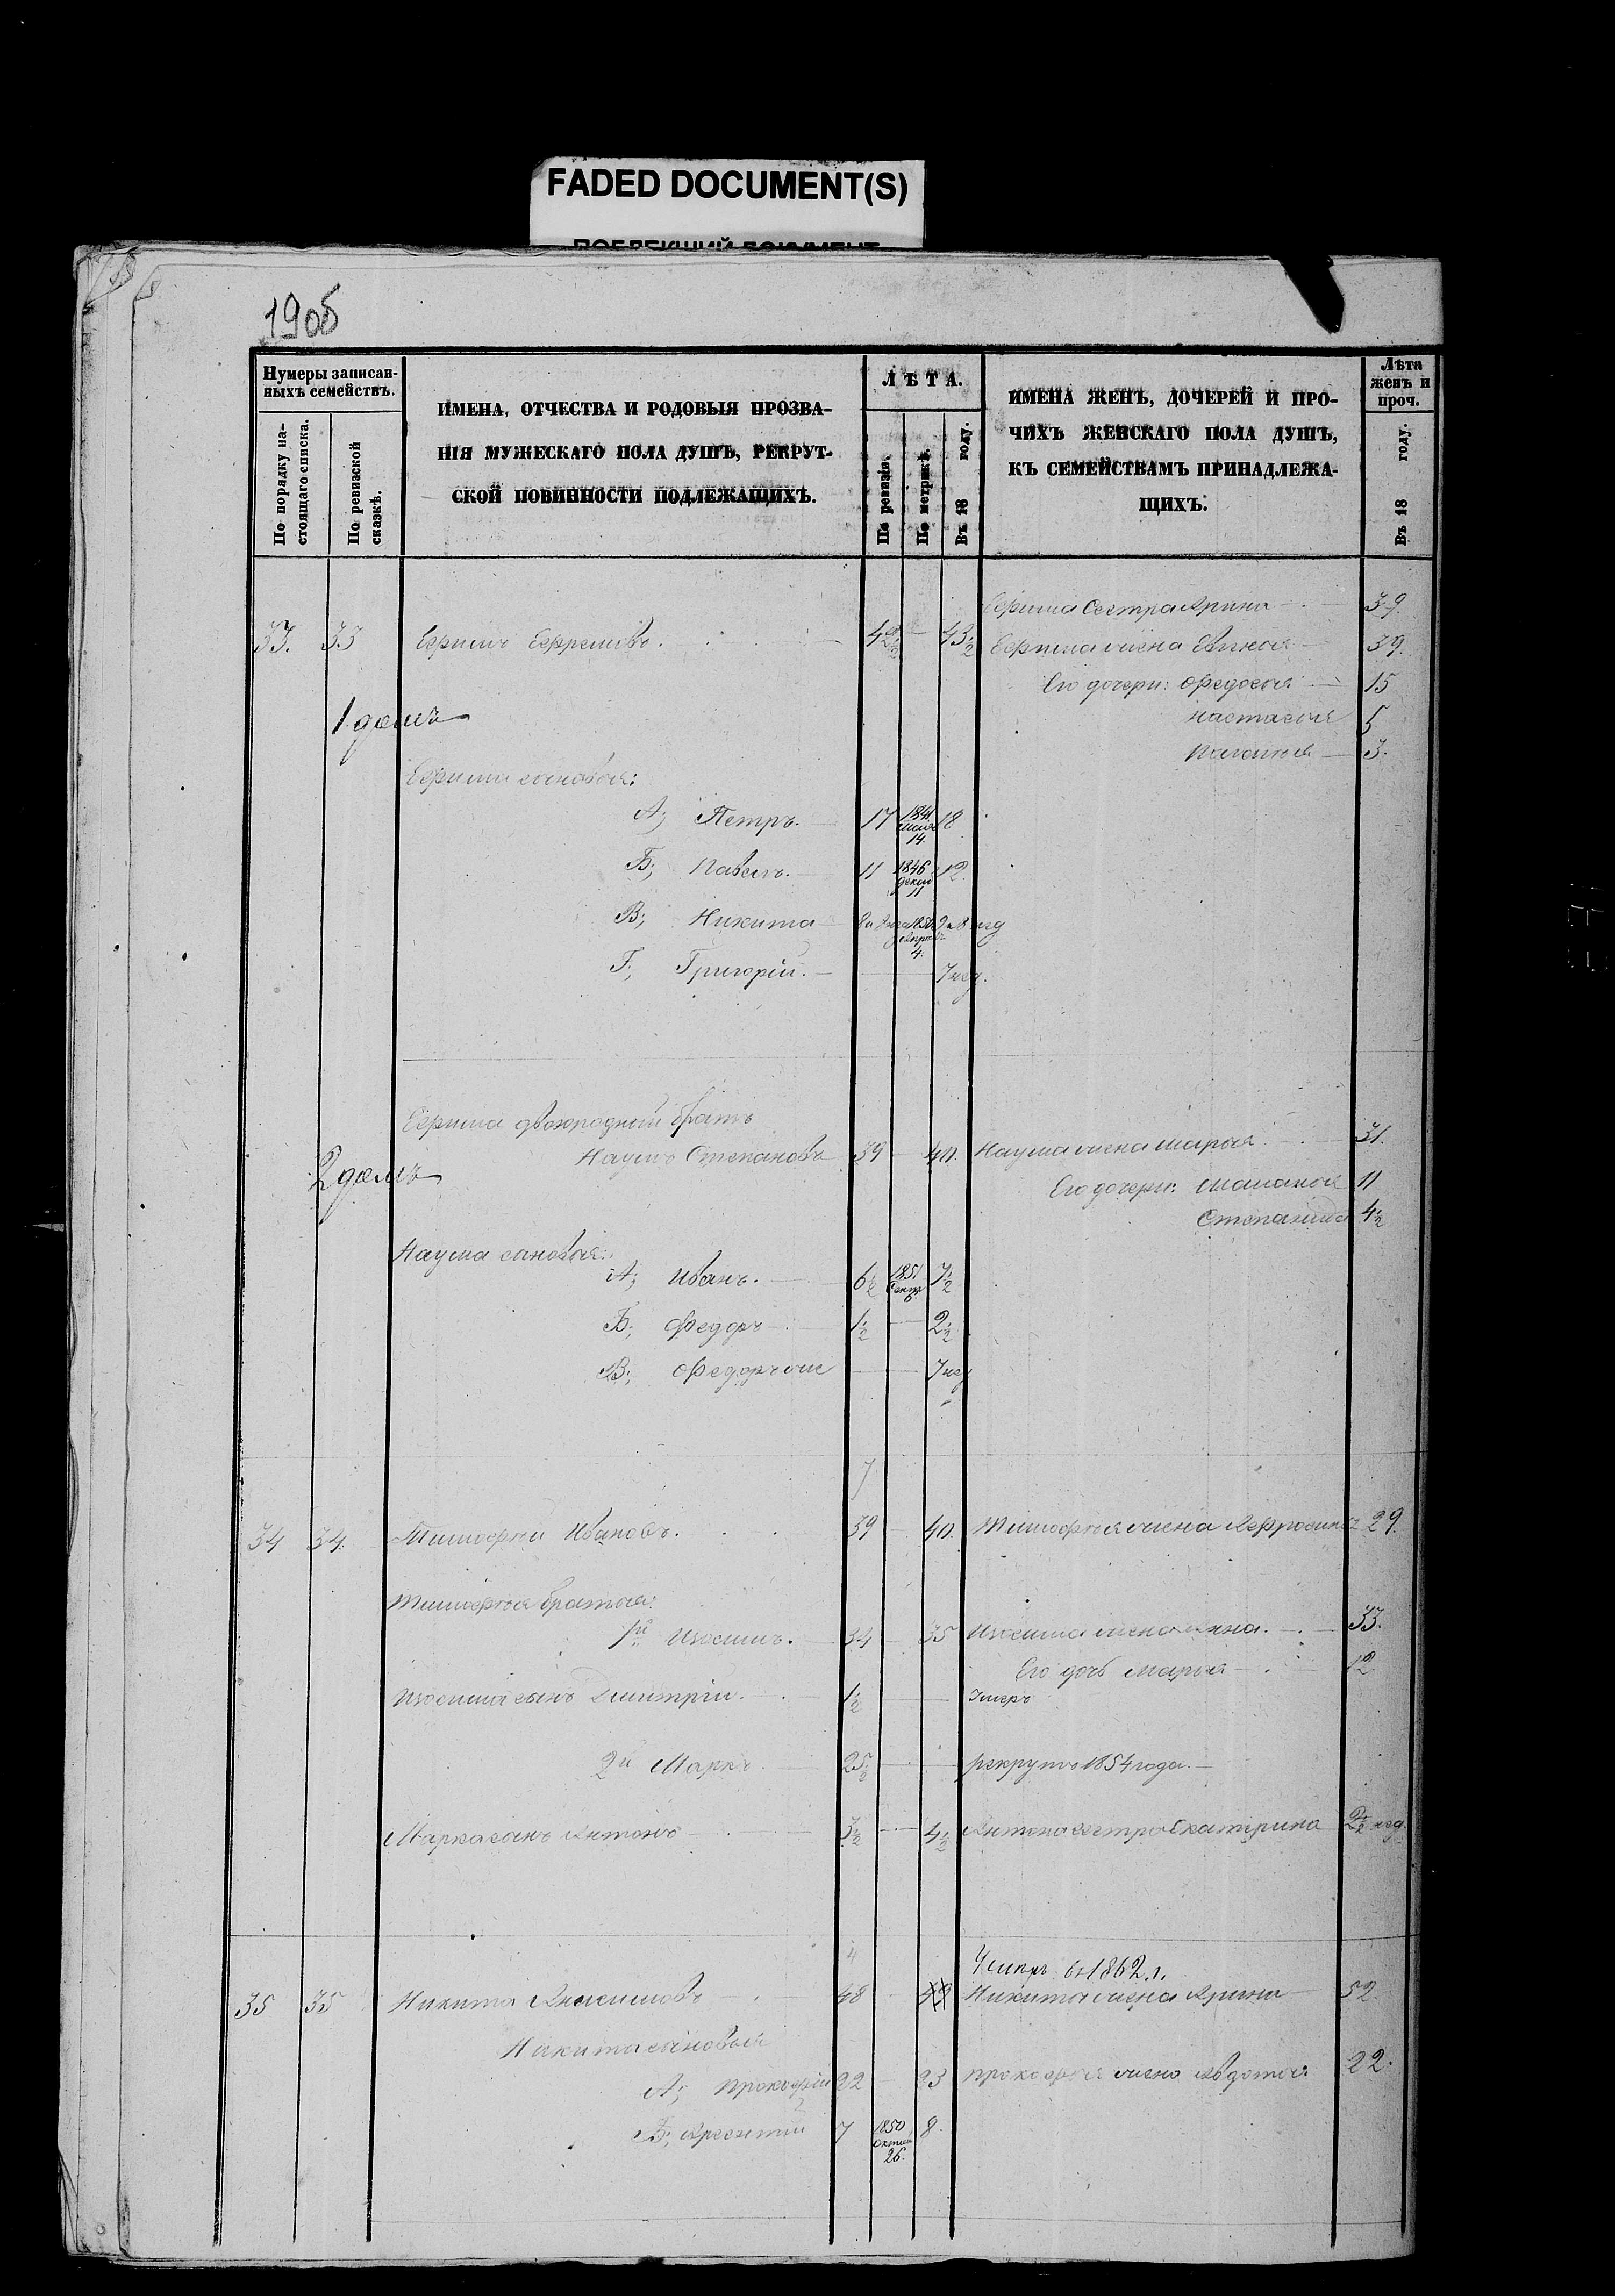 FADED DOCUMENT(S)
ПОБЛЕКШИЙ ДОКУМЕНТ
1905
Нумеры записан-
ныхъ семействъ.
По порядку на-
стоящаго списка.
По ревизской
сказкѣ.
ИМЕНА, ОТЧЕСТВА И РОДОВЫЯ ПРОЗВА-
НІЯ МУЖЕСКАГО ПОЛА ДУШЪ, РЕКРУТ-
СКОЙ ПОВИННОСТИ ПОДЛЕЖАЩИХЪ.
ЛѢТА.
По ревизіи.
По метрикѣ.
Въ 18 году.
ИМЕНА ЖЕНЪ, ДОЧЕРЕЙ И ПРО-
ЧИХЪ ЖЕНСКАГО ПОЛА ДУШЪ,
КЪ СЕМЕЙСТВАМЪ ПРИНАДЛЕЖА-
ЩИХЪ.
Лѣта
женъ и
проч.
Въ 18 году.
Ефима сестра Арина 39.
33. 33 Ефимъ Ефремовъ. 42½ 43½ Ефима жена 39.
Его дочери: Федосья 15
1 домъ
Настасья 5
Пелагея 3.
Ефима сыновья:
А; Петръ. 17 1841 14. 18
Б; Павелъ. 11 1846 декаб 11 12
В; Никита 1850 4.
Г; Григорій. 7 нед.
Ефима двоюродный братъ
Наумъ Степановъ 39 40. Наума жена Марья 31.
2 домъ
Его дочери: Маланья 11
Степанида 4½
Наума сыновья:
А; Иванъ. 6½ 1851 Сент 6. 7½
Б; Федоръ 1½ 2½
В; Федоръ же 7 нед
7
34 34. Тимофей Ивановъ. 39 40. Тимофея жена Афросинья 29.
Тимофея братья:
1й Изосимъ. 34 35 Изосима жена Анна. 33.
Его дочь Марья 12
Изосима сынъ Дмитрій. 1½ Умеръ
2й Маркъ. 25½ рекрутъ 1854 года.
Марка сынъ Антонъ 3½ 4½ Антона сестра Екатерина 2½ нед.
4
Умеръ въ 1862 г.
35 35 Никита Анисимовъ 48 49 Никита жена Арина 52
Никита сыновья
А; Прокофій 22 23 Прокофья жена Авдотья 22.
Б; Арсентій 7 1850 Октяб 26. 8.